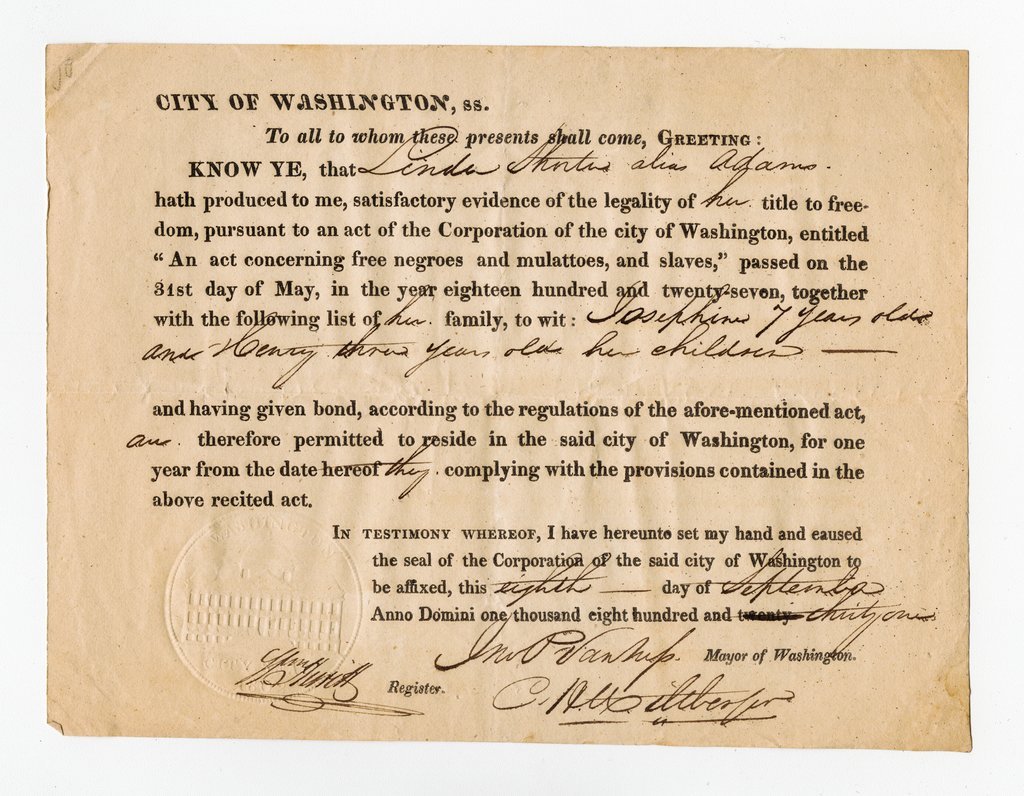 CITY OF WASHINGTON, ss.
To all to whom these presents shall come, GREETING:
KNOW YE, that Linda Shorter alias Adams.
hath produced to me, satisfactory evidence of the legality of her title to free-
dom, pursuant to an act of the Corporation of the city of Washington, entitled
"An act concerning free negroes and mulattoes, and slaves," passed on the
31st day of May, in the year eighteen hundred and twenty-seven, together
with the following list of her family, to wit: Josephine 7 years old
and Henry three years old her children —
and having given bond, according to the regulations of the afore-mentioned act,
are therefore permitted to reside in the said city of Washington, for one
year from the date hereof they complying with the provisions contained in the
above recited act.
IN TESTIMONY WHEREOF, I have hereunto set my hand and caused
the seal of the Corporation of the said city of Washington to
be affixed, this eighth — day of September
Anno Domini one thousand eight hundred and twenty thirty one
Jno P Van Ness. Mayor of Washington.
Wm Hewitt Register.
C. H. Wiltberger
WASHINGTON
CITY